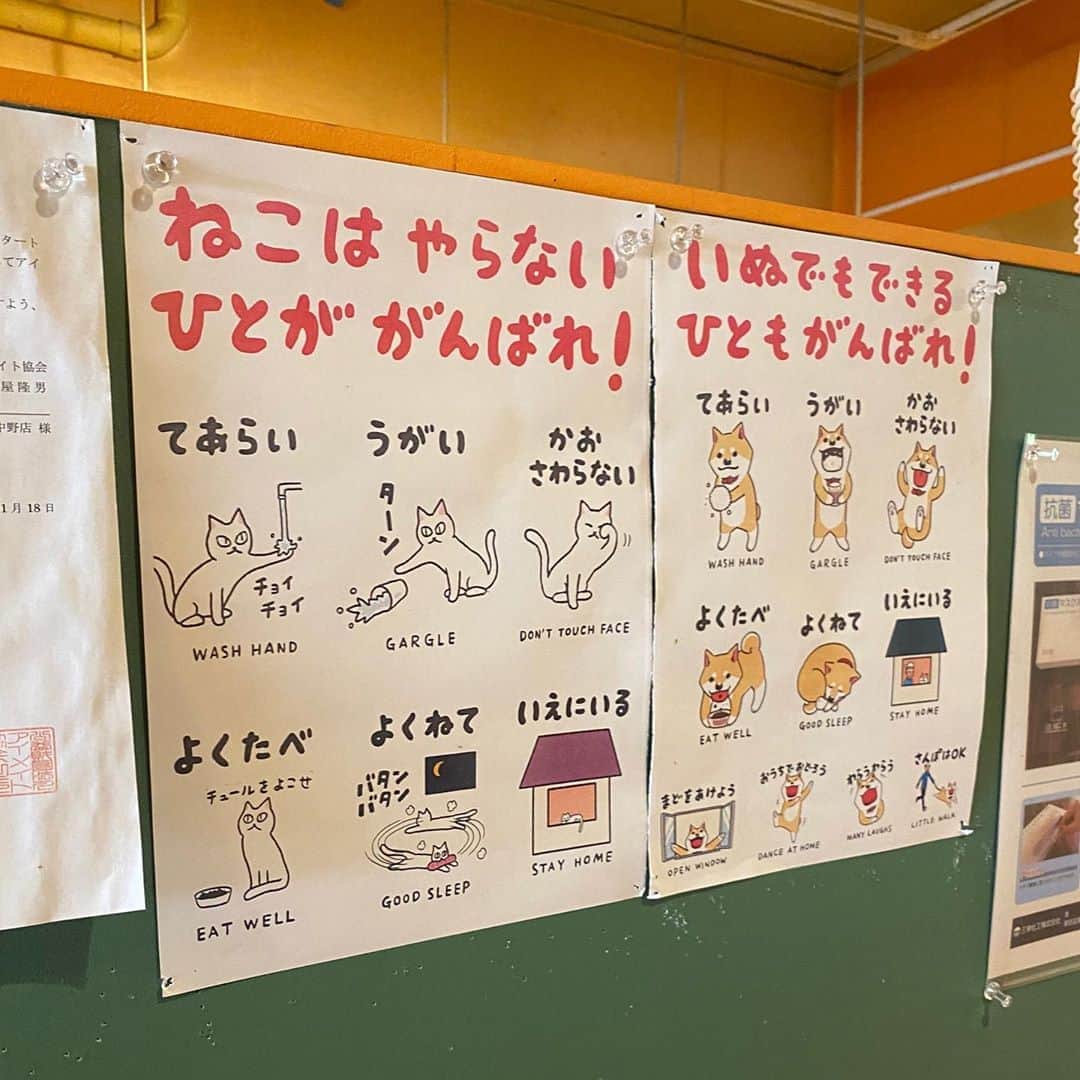 タート
てアイ
すよう、
イト協会
屋隆男
中野店 様
1月18日
ねこは やらない
ひとが がんばれ!
てあらい
チョイ
チョイ
WASH HAND
うがい
ターン
GARGLE
かお
さわらない
DON'T TOUCH FACE
よくたべ
チュールをよこせ
EAT WELL
よくねて
バタン
バタン
GOOD SLEEP
いえにいる
STAY HOME
いぬでもできる
ひともがんばれ!
てあらい
WASH HAND
うがい
GARGLE
かお
さわらない
DON'T TOUCH FACE
よくたべ
EAT WELL
よくねて
GOOD SLEEP
いえにいる
STAY HOME
まどをあけよう
OPEN WINDOW
おうちでおどろう
DANCE AT HOME
わらうわらう
MANY LAUGHS
さんぽはOK
LITTLE WALK
抗菌
Anti bact